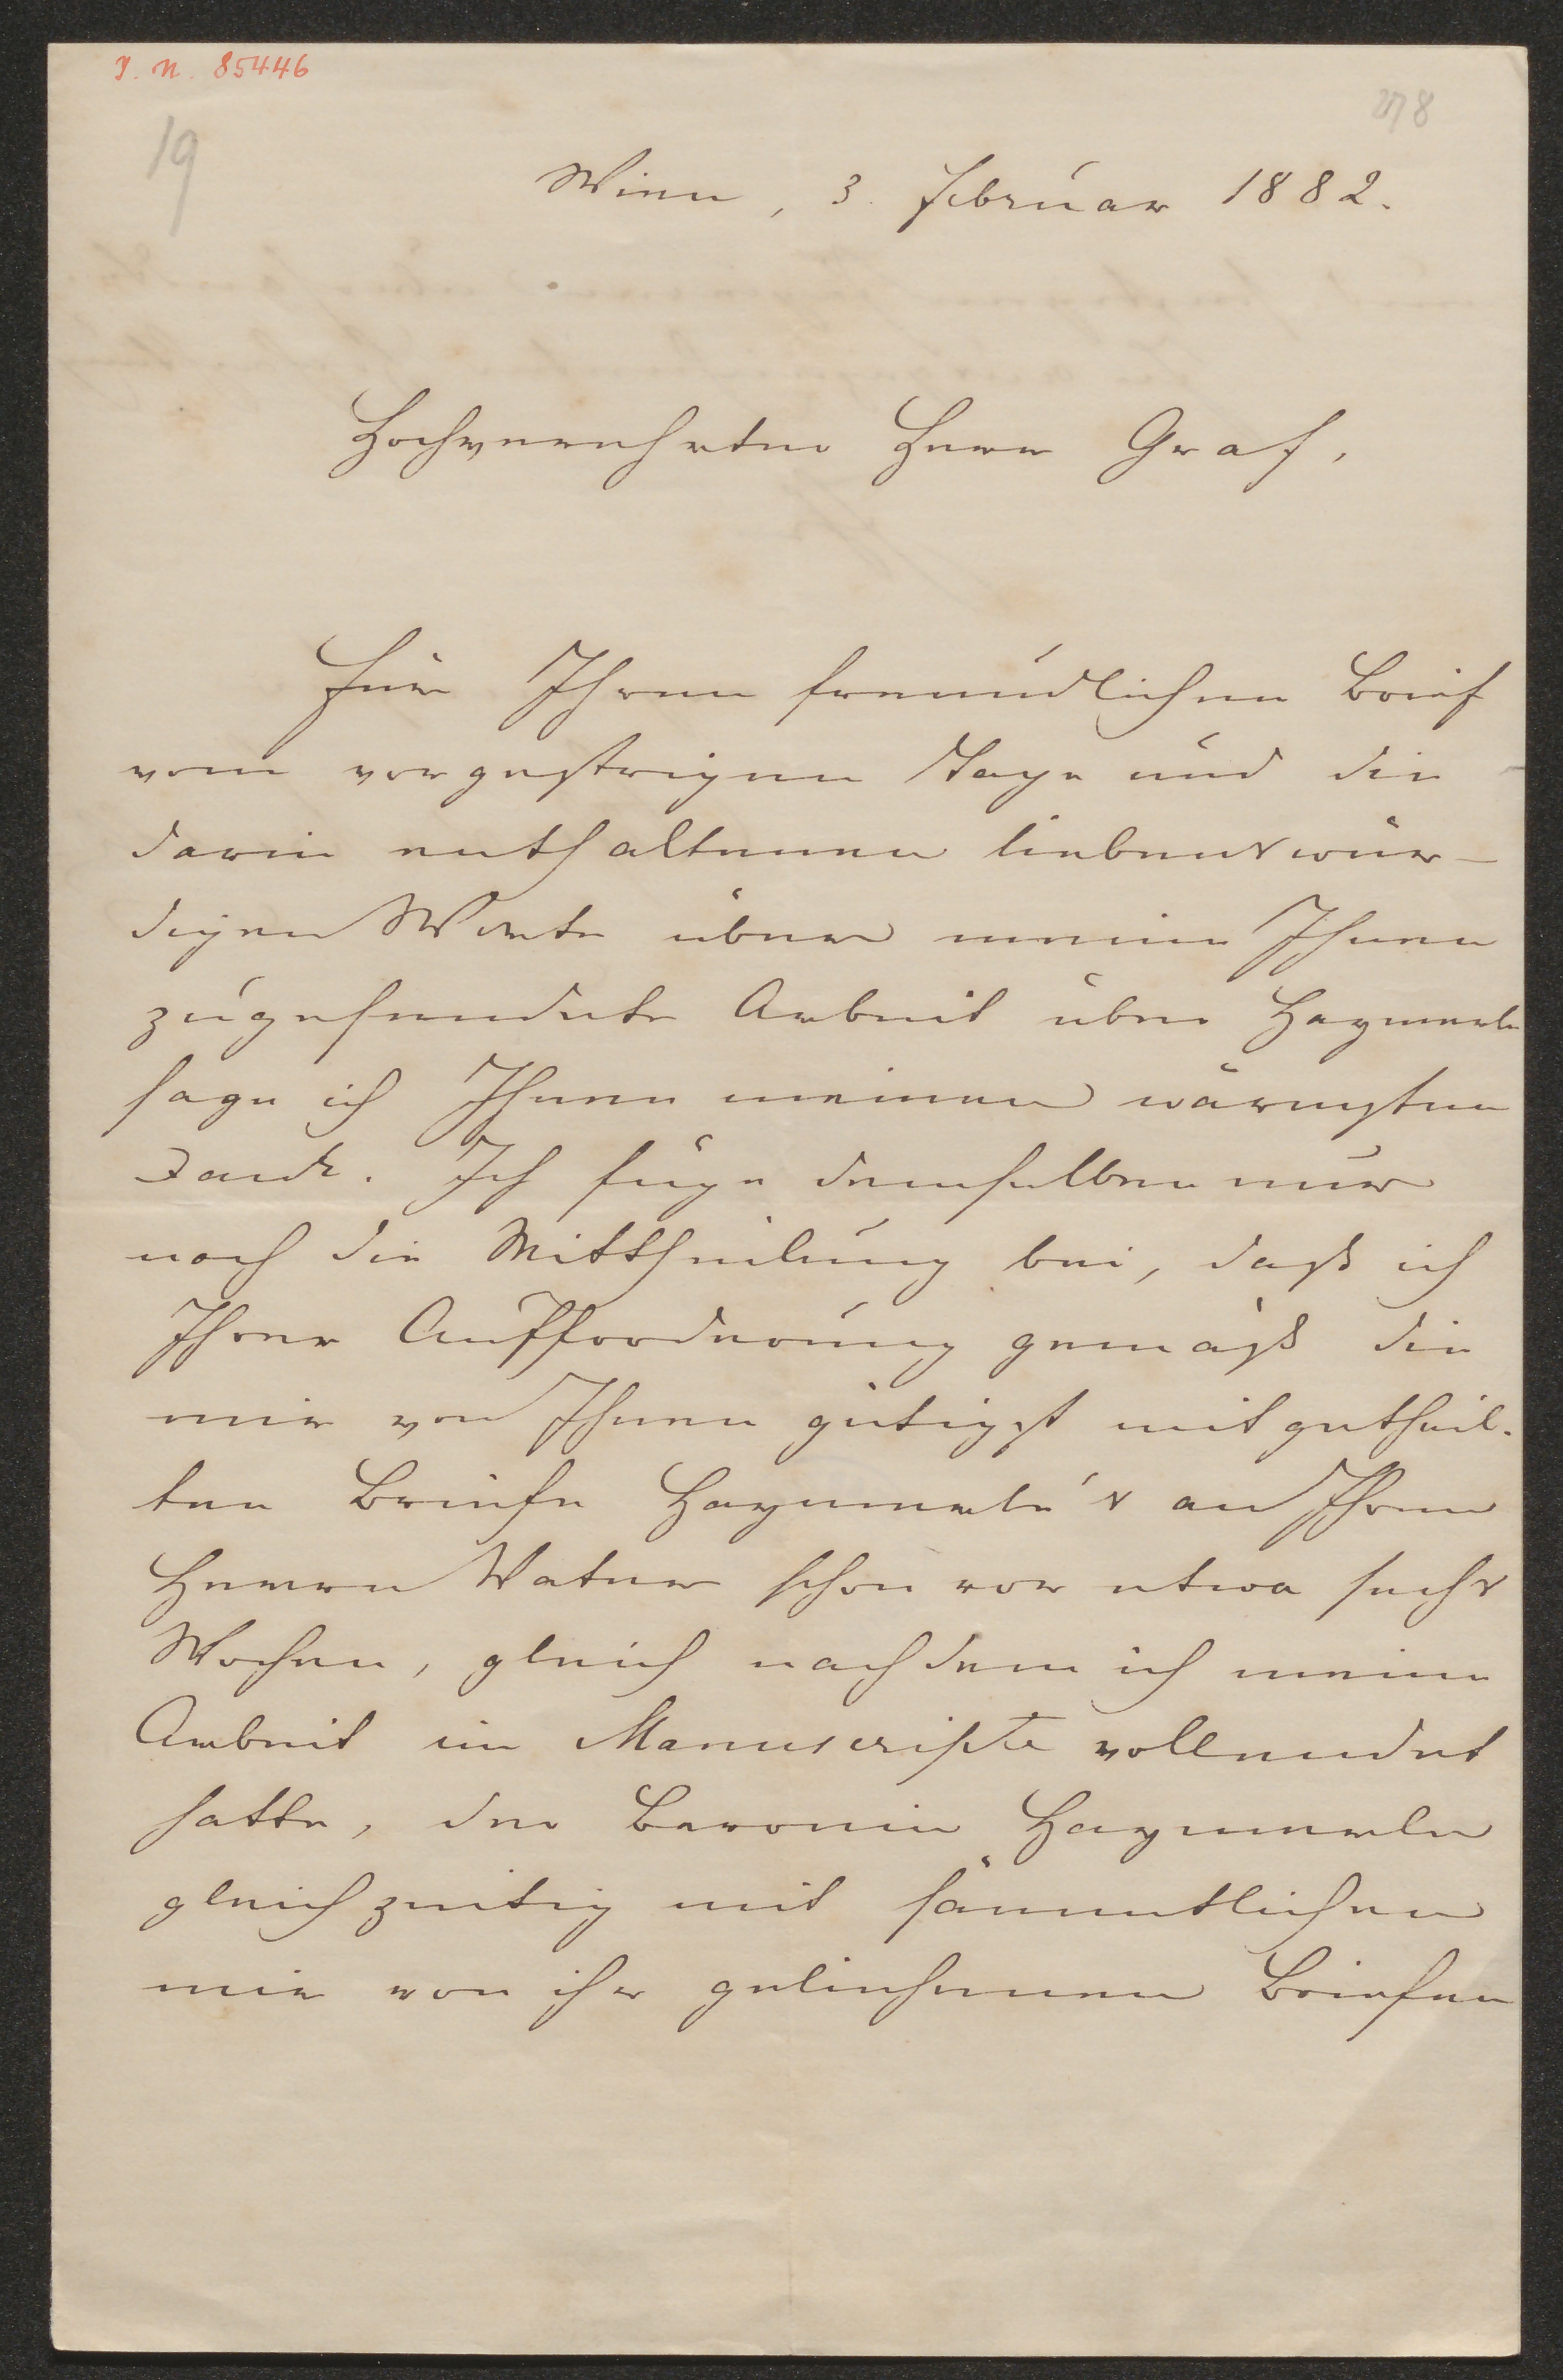 I. N. 85446
278
19
Wien, 3. Februar 1882.
Hochverehrter Herr Graf,
Für Ihren freundlichen Brief
vom vorgestrigen Tage und die
darin enthaltenen liebenswür-
digen Worte über meine Ihnen
zugesendete Arbeit über Haymerle
sage ich Ihnen meinen wärmsten
Dank. Ich füge demselben nur
noch die Mittheilung bei, daß ich
Ihrer Aufforderung gemäß die
mir von Ihnen gütigst mitgetheil-
ten Briefe Haymerle's an Ihren
Herrn Vater schon vor etwa sechs
Wochen, gleich nachdem ich meine
Arbeit im Manuscripte vollendet
hatte, der Baronin Haymerle
gleichzeitig mit sämmtlichen
mir von ihr geliehenen Briefen